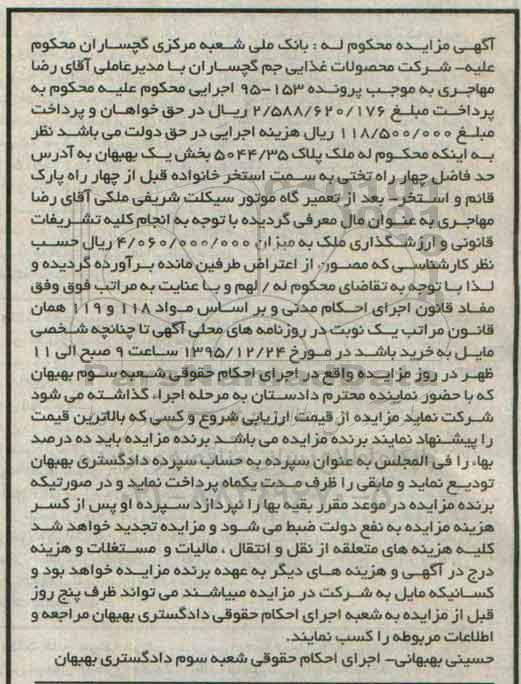 آگهی مزایده محکوم له : بانک ملی شعبه مرکزی گچساران محکوم
علیه- شرکت محصولات غذایی جم گچساران با مدیرعاملی آقای رضا
مهاجری به موجب پرونده ۱۵۳-۹۵ اجرایی محکوم علیه محکوم به
پرداخت مبلغ ۲/۵۸۸/۶۲۰/۱۷۶ ریال در حق خواهان و پرداخت
مبلغ ۱۱۸/۵۰۰/۰۰۰ ریال هزینه اجرایی در حق دولت می باشد نظر
به اینکه محکوم له ملک پلاک ۵۰۴۴/۳۵ بخش یک بهبهان به آدرس
حد فاصل چهار راه تختی به سمت استخر خانواده قبل از چهار راه پارک
قائم و استخر- بعد از تعمیر گاه موتور سیکلت شریفی ملکی آقای رضا
مهاجری به عنوان مال معرفی گردیده با توجه به انجام کلیه تشریفات
قانونی و ارزشگذاری ملک به میزان ۴/۰۶۰/۰۰۰/۰۰۰ ریال حسب
نظر کارشناسی که مصون از اعتراض طرفین مانده برآورده گردیده و
لذا با توجه به تقاضای محکوم له / لهم و با عنایت به مراتب فوق وفق
مفاد قانون اجرای احکام مدنی و بر اساس مواد ۱۱۸ و ۱۱۹ همان
قانون مراتب یک نوبت در روزنامه های محلی آگهی تا چنانچه شخصی
مایل به خرید باشد در مورخ ۱۳۹۵/۱۲/۲۴ ساعت ۹ صبح الی ۱۱
ظهر در روز مزایده واقع در اجرای احکام حقوقی شعبه سوم بهبهان
که با حضور نماینده محترم دادستان به مرحله اجراء گذاشته می شود
شرکت نماید مزایده از قیمت ارزیابی شروع و کسی که بالاترین قیمت
را پیشنهاد نمایند برنده مزایده می باشد برنده مزایده باید ده درصد
بهاء را فی المجلس به عنوان سپرده به حساب سپرده دادگستری بهبهان
تودیع نماید و مابقی را ظرف مدت یکماه پرداخت نماید و در صورتیکه
برنده مزایده در موعد مقرر بقیه بها را نپردازد سپرده او پس از کسر
هزینه مزایده به نفع دولت ضبط می شود و مزایده تجدید خواهد شد
کلیه هزینه های متعلقه از نقل و انتقال ، مالیات و مستغلات و هزینه
درج در آگهی و هزینه های دیگر به عهده برنده مزایده خواهد بود و
کسانیکه مایل به شرکت در مزایده میباشند می تواند ظرف پنج روز
قبل از مزایده به شعبه اجرای احکام حقوقی دادگستری بهبهان مراجعه و
اطلاعات مربوطه را کسب نمایند.
حسینی بهبهانی- اجرای احکام حقوقی شعبه سوم دادگستری بهبهان